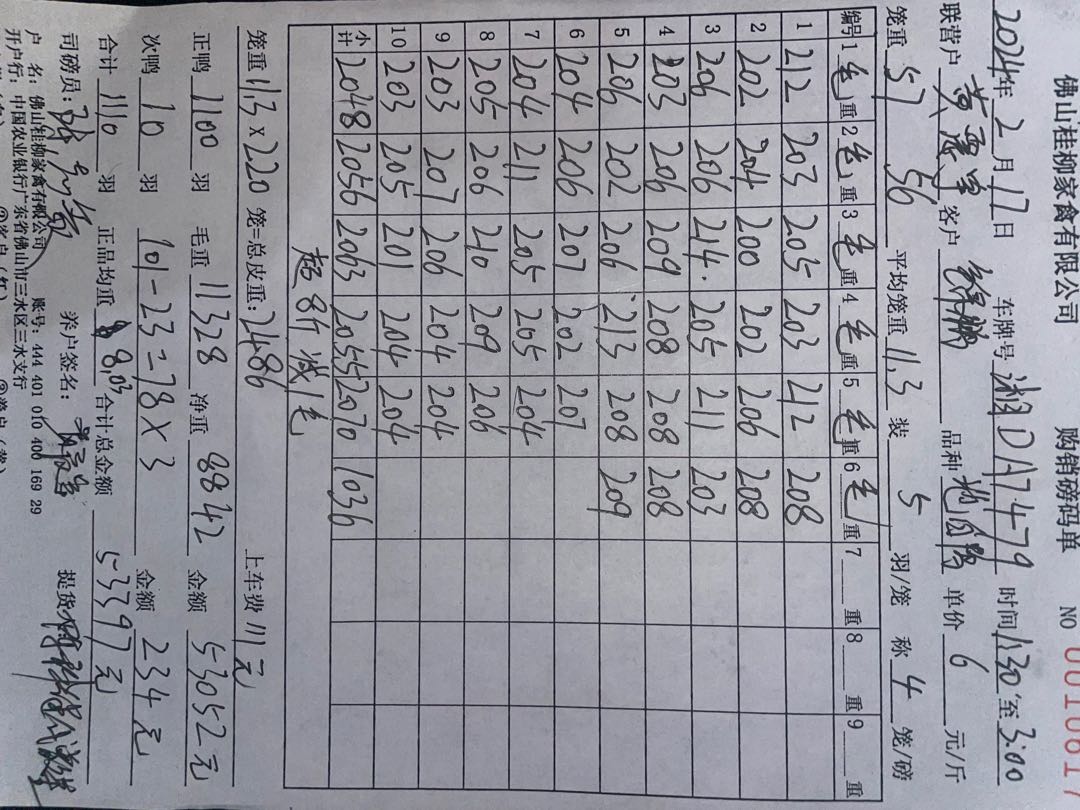 佛山桂柳家禽有限公司 购销磅码单 NO 0010817
2024年2月17日 车牌号 湘DA7479 时间1:30 至3:00
联营户 客户 品种 单价 6 元/斤
笼重 57 56 平均笼重 11.3 装 5 羽/笼 称 4 笼/磅
编号 1 毛重 2 毛重 3 毛重 4 毛重 5 毛重 6 毛重 7 重 8 重 9 重
1 212 203 205 203 212 208
2 202 204 200 202 206 208
3 206 206 214. 205 211 203
4 203 206 209 208 208 208
5 206 202 206 213 208 209
6 204 206 207 202 207
7 204 211 205 205 204
8 205 206 210 209 206
9 203 207 206 204 204
10 203 205 201 204 204
小计 2048 2056 2063 2055 2070 1036
超8斤减1毛
笼重 11.3 × 220 笼=总皮重: 2486 上车费 111元
正鸭 1100 羽 毛重 11328 净重 8842 金额 53052元
次鸭 10 羽 101-23=78×3 金额 234元
合计 1110 羽 正品均重 8.03 合计总金额 53397元
司磅员: 养户签名: 提货
户 名: 佛山桂柳家禽有限公司 账号: 444 401 010 400 169 29
开户行: 中国农业银行广东省佛山市三水区三水支行